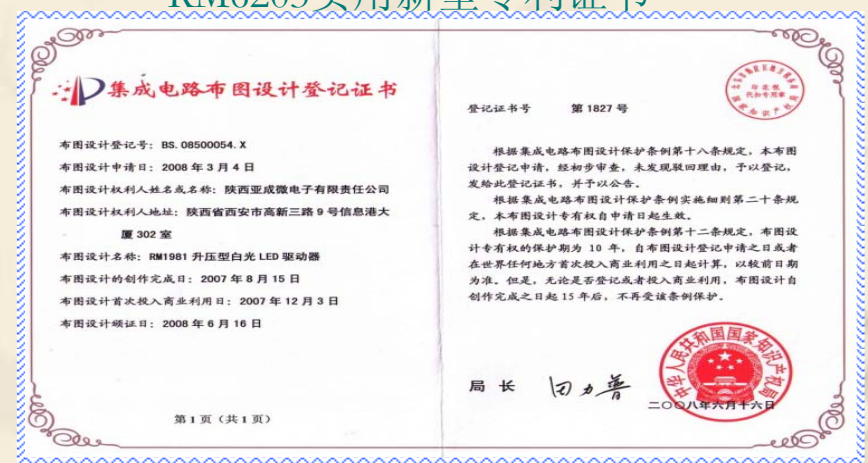 RM6203实用新型专利证书
集成电路布图设计登记证书
布图设计登记号：BS. 08500054. X
布图设计申请日：2008 年 3 月 4 日
布图设计权利人姓名或名称：陕西亚成微电子有限责任公司
布图设计权利人地址：陕西省西安市高新三路 9 号信息港大
厦 302 室
布图设计名称：RM1981 升压型白光 LED 驱动器
布图设计的创作完成日：2007 年 8 月 15 日
布图设计首次投入商业利用日：2007 年 12 月 3 日
布图设计颁证日：2008 年 6 月 16 日
第 1 页（共 1 页）
登记证书号 第 1827 号
印花税
代扣专用章
根据集成电路布图设计保护条例第十八条规定，本布图
设计登记申请，经初步审查，未发现驳回理由，予以登记，
发给此登记证书，并予以公告。
根据集成电路布图设计保护条例实施细则第二十条规
定，本布图设计专有权自申请日起生效。
根据集成电路布图设计保护条例第十二条规定，布图设
计专有权的保护期为 10 年，自布图设计登记申请之日或者
在世界任何地方首次投入商业利用之日起计算，以较前日期
为准。但是，无论是否登记或者投入商业利用，布图设计自
创作完成之日起 15 年后，不再受该条例保护。
局 长 田力普
中华人民共和国国家知识产权局
二〇〇八年六月十六日